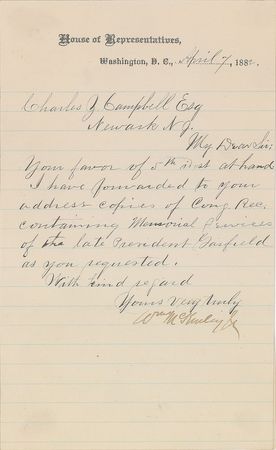 House of Representatives,
Washington, D. C., April 7, 1882.
Charles Y Campbell Esq
Newark N.J.
My Dear Sir:
Your favor of 5th inst at hand
I have forwarded to your
address copies of Cong Rec.
containing Memorial Services
of the late President Garfield
as you requested.
With kind regard
Yours Very truly
Wm McKinley Jr